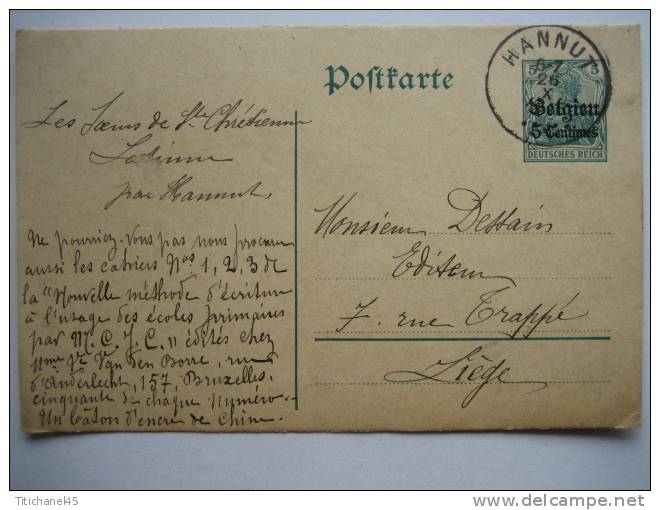 Postkarte
HANNUT
6-7
26
X
5 5
Belgien
5 Centimes
DEUTSCHES REICH
Les Sœurs de Ste Chrétienne
par Hannut
Monsieur Dessain
Editeur
7. rue Trappé
Liège
Ne pourriez-vous pas nous procurer
aussi les cahiers Nos 1, 2, 3 de
la "Nouvelle méthode d'écriture
à l'usage des écoles primaires
par M. C. J. C." édités chez
Mme Vve Van den Borre, rue
d'Anderlecht, 157, Bruxelles,
cinquante de chaque numéro.-
Un bâton d'encre de Chine.
Titichane45
delcampe.net